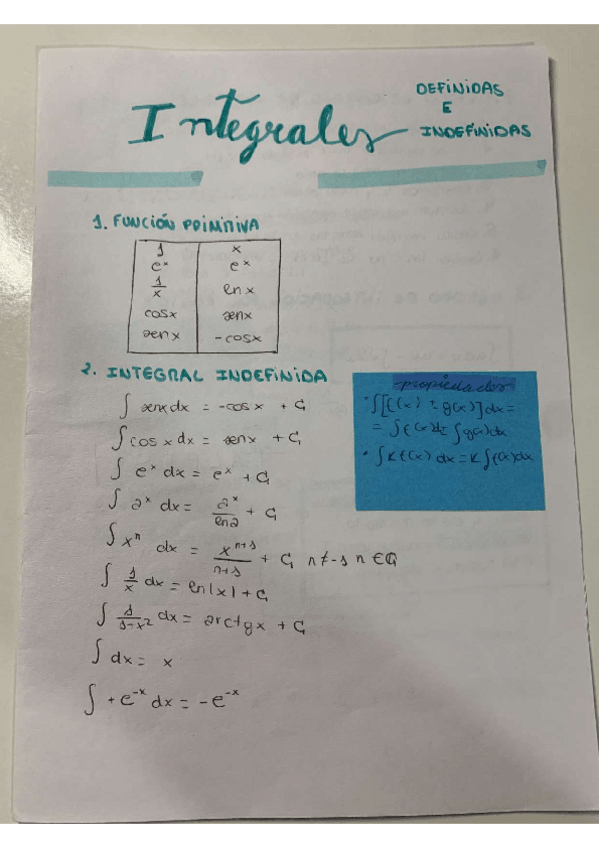 Integrales
DEFINIDAS
E
INDEFINIDAS
1. FUNCIÓN PRIMITIVA
1 x
e^x e^x
1/x ln x
cosx senx
senx -cosx
2. INTEGRAL INDEFINIDA
∫ senx dx = -cos x + C
∫ cos x dx = senx + C
∫ e^x dx = e^x + C
∫ a^x dx = a^x/lna + C
∫ x^n dx = x^(n+1)/(n+1) + C n≠-1 n ∈ Q
∫ 1/x dx = ln|x| + C
∫ 1/(1-x^2) dx = arctgx + C
∫ dx = x
∫ +e^-x dx = -e^-x
propiedades
• ∫[f(x) ± g(x)]dx =
= ∫f(x)dx ± ∫g(x)dx
• ∫Kf(x) dx = K∫f(x)dx